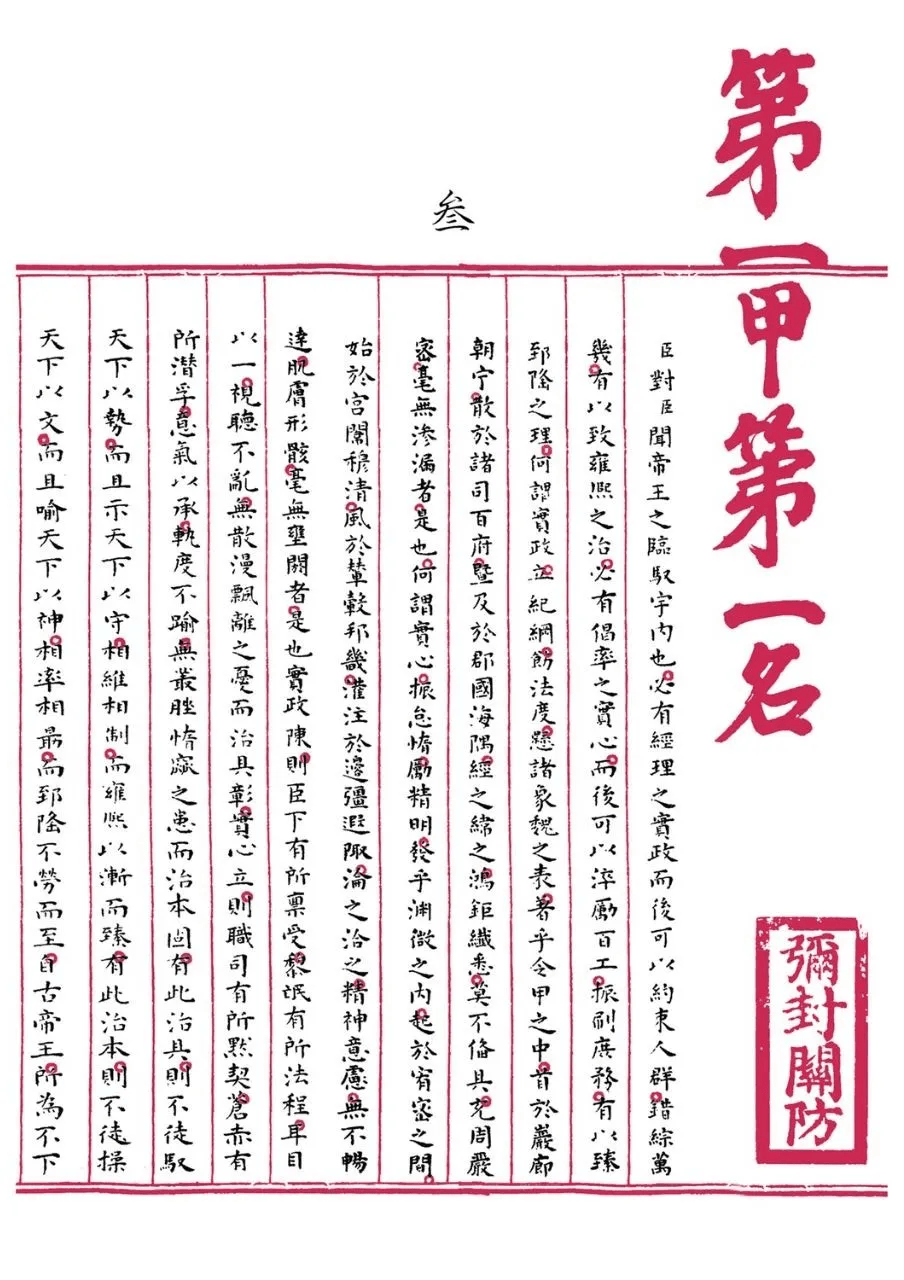 第一甲第一名
彌封關防
叁
臣對臣聞帝王之臨馭宇内也必有經理之實政而後可以約束人群錯綜萬
幾有以致雍熙之治必有倡率之實心而後可以淬勵百工振刷庶務有以臻
郅隆之理何謂實政立紀綱飭法度懸諸象魏之表著乎令甲之中首於巖廊
朝宁散於諸司百府暨及於郡國海隅經之緯之鴻鉅纖悉莫不備具充周嚴
密毫無滲漏者是也何謂實心振怠惰勵精明發乎淵微之内起於宥密之間
始於宫闈穆清風於輦轂邦畿灌注於邊疆遐陬淪之洽之精神意慮無不暢
達肌膚形骸毫無壅閼者是也實政陳則臣下有所禀受黎氓有所法程耳目
以一視聽不亂無散漫飄離之憂而治具彰實心立則職司有所默契蒼赤有
所潜孚意氣以承軌度不踰無叢脞惰窳之患而治本固有此治具則不徒馭
天下以勢而且示天下以守相維相制而雍熙以漸而臻有此治本則不徒操
天下以文而且喻天下以神相率相勗而郅隆不勞而至自古帝王所為不下